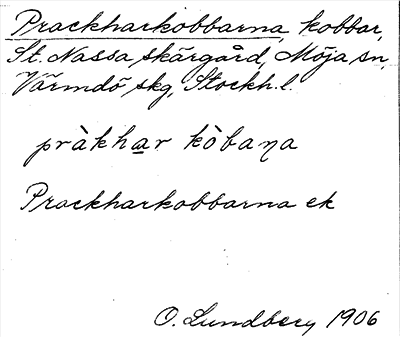 Prackharkobbarna, kobbar,
St. Nassa skärgård, Möja sn,
Värmdö skg, Stockh. l.
pràkhar kòbaṇa
Prackharkobbarna ek
O. Lundberg 1906